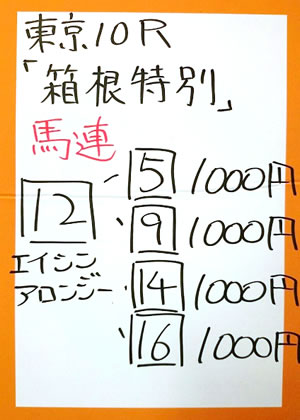 東京10R
「箱根特別」
馬連
12
エイシン
アロンジー
5 1000円
9 1000円
14 1000円
16 1000円